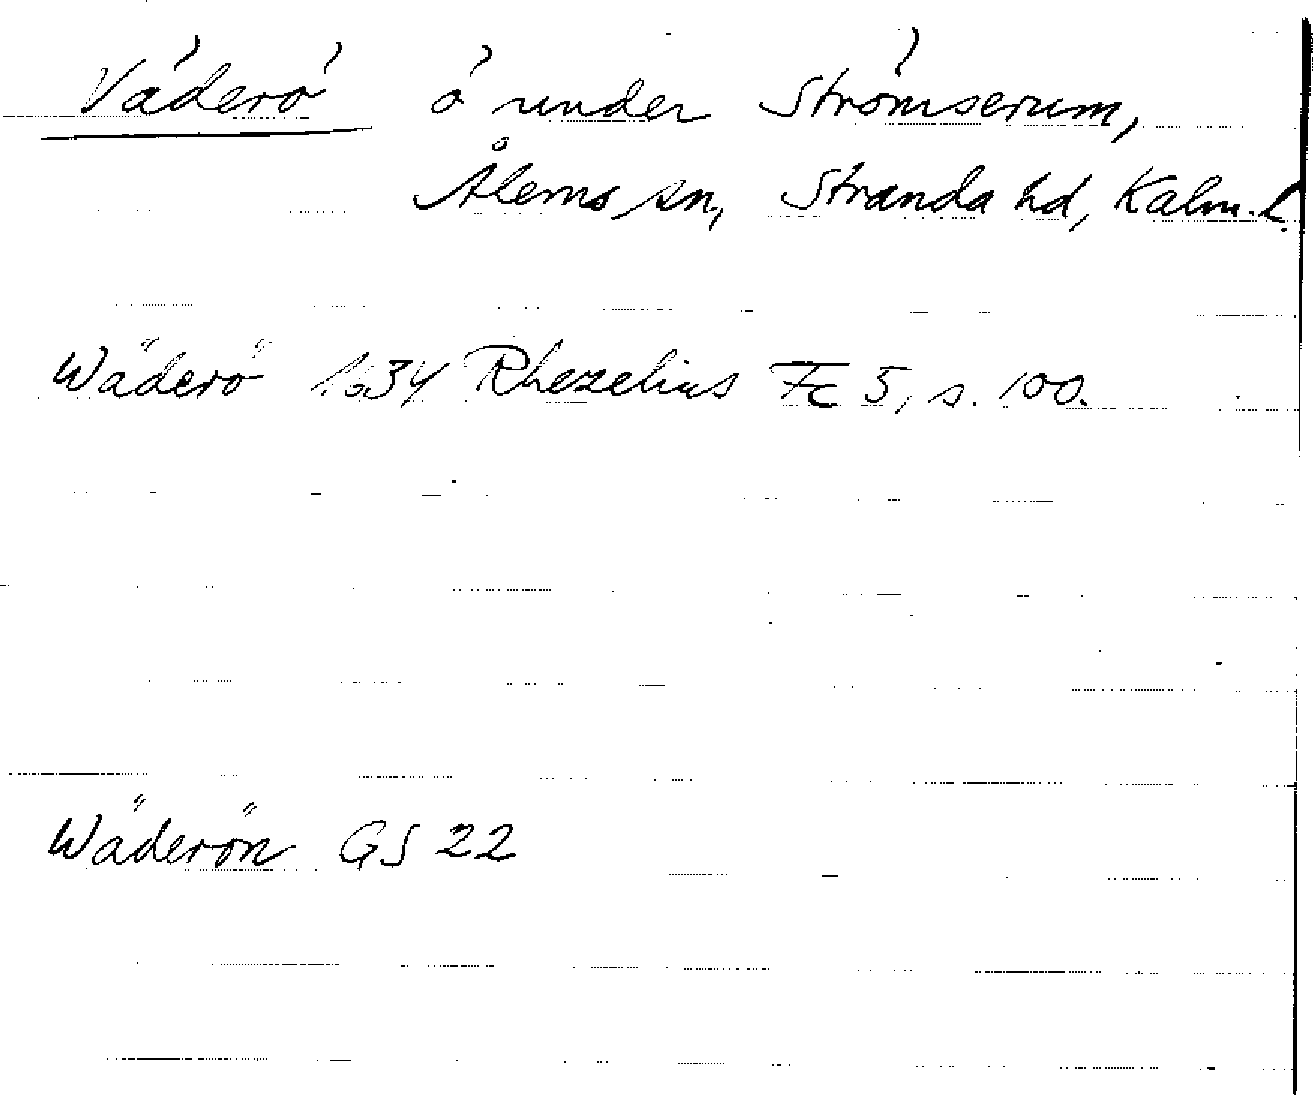 Väderö ö under Strömserum,
Ålems sn, Stranda hd, Kalm. l.
Wäderö 1634 Rhezelius Fc 5, s. 100.
Wäderön GS 22